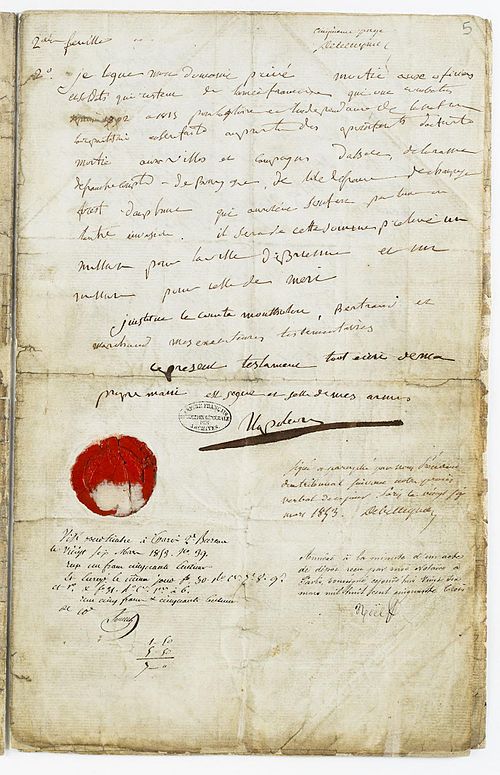 2ème feuille
cinquième page
5
2º. je lègue mon domaine privé moitié aux officiers
et soldats qui restent de l'armée française qui ont combattu
1792 à 1815 pour la gloire et l'indépendance de la nation
la répartition en sera faite au prorata des appointements d'activité
moitié aux villes et campagnes d'alsace de lorraine
de franche comté de Bourgogne de l'ile de france de champagne
forest dauphiné qui auraient souffert par l'une ou
l'autre invasion. il sera de cette somme prélevé un
million pour la ville de Brienne et un
million pour celle de meri
j'institue le comte montholon, Bertrand et
marchand mes exécuteurs testamentaires
ce présent testament tout écrit de ma
propre main est signé et scellé de mes armes
Napoléon
EMPIRE FRANÇAIS
DIRECTION GÉNÉRALE
DES
ARCHIVES
Signé et paraphé par nous Président
du tribunal suivant notre procès
verbal de ce jour. Paris le vingt six
mars 1853. Debelleyme
Visé pour timbre à Paris 2e Bureau
le Vingt six Mars 1853. No. 39.
reçu un franc cinquante centimes
cinq francs cinquante centimes
Annexé à la minute d'un acte
de dépôt reçu par moi notaire à
Paris, soussigné aujourd'hui vingt six
mars mil huit cent cinquante trois
1 50
5 50
7 "